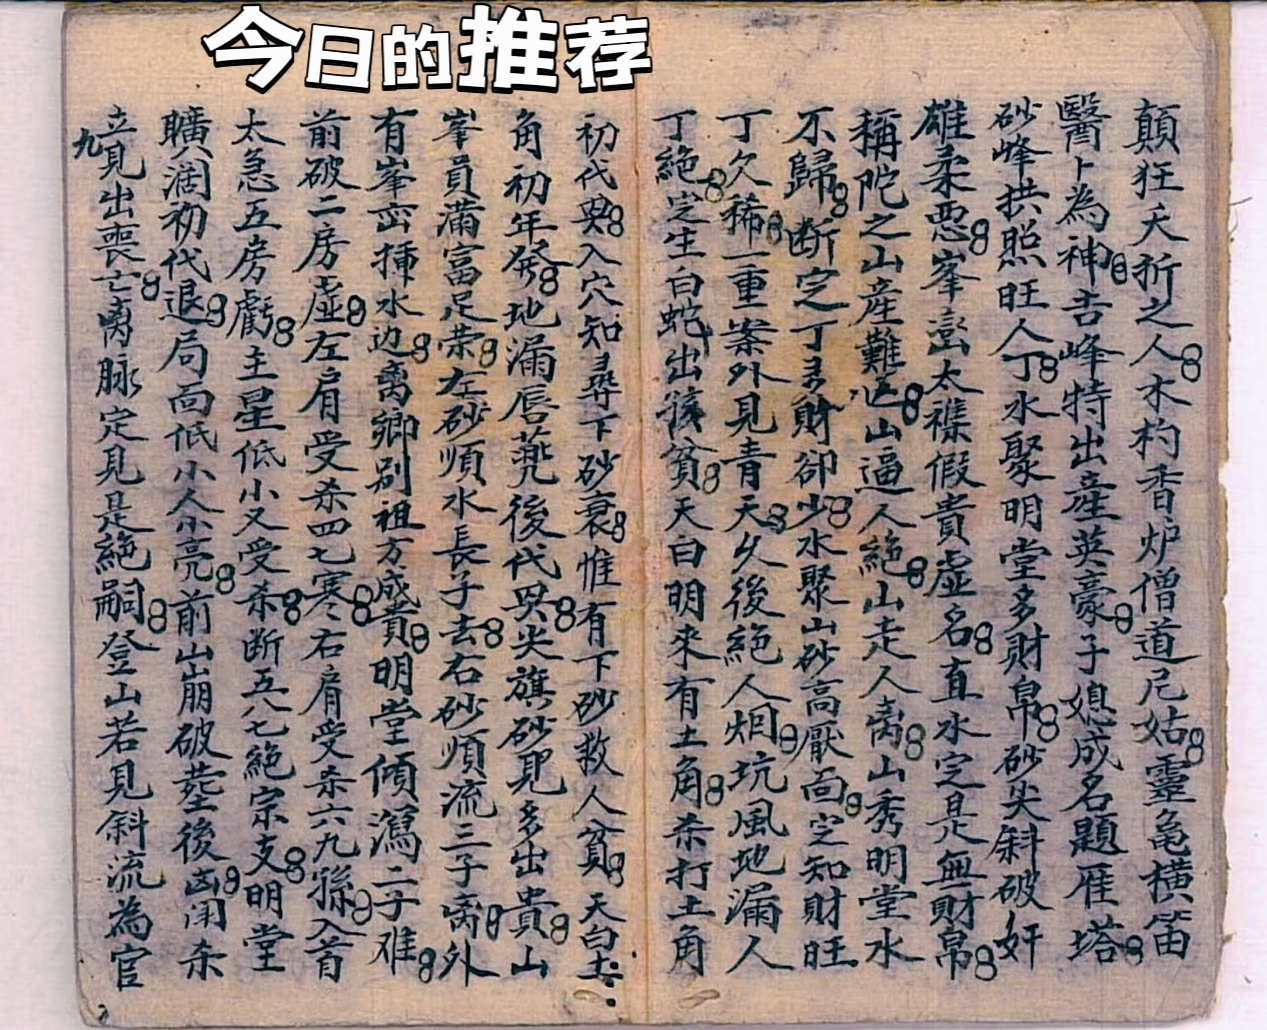 今日的推荐
顛狂夭折之人木杓香炉僧道尼姑靈龜横笛
醫卜為神吉峰特出産英豪子媳成名題雁塔
砂峰拱照旺人丁水聚明堂多財帛砂尖斜破奸
雄柔惡峯巒太襍假貴虚名直水定是無財帛
稱陀之山産難山逼人絶山走人离山秀明堂水
不歸断定丁財卻少水聚山砂高厭面定知財旺
丁欠稀一重案外見青天久後絶人烟坑風地漏人
丁絶定生白蛇出貧天白明來有土角杀打土角
初代入穴知尋下砂衰惟有下砂救人貧天白土
角初年發地漏唇後代尖旗砂見多出貴山
峯員滿富足荣左砂順水長子去右砂順流三子离外
有峯挿水边离鄉别祖方成貴明堂傾瀉二子难
前破二房虚左肩受杀四七寒右肩受杀六九孫入首
太急五房虧主星低小又受杀断五八七絶宗支明堂
曠濶初代退局面低小人小亮前山崩破塟後凶闭杀
立見出喪亡离脉定見是絶嗣登山若見斜流為官
九